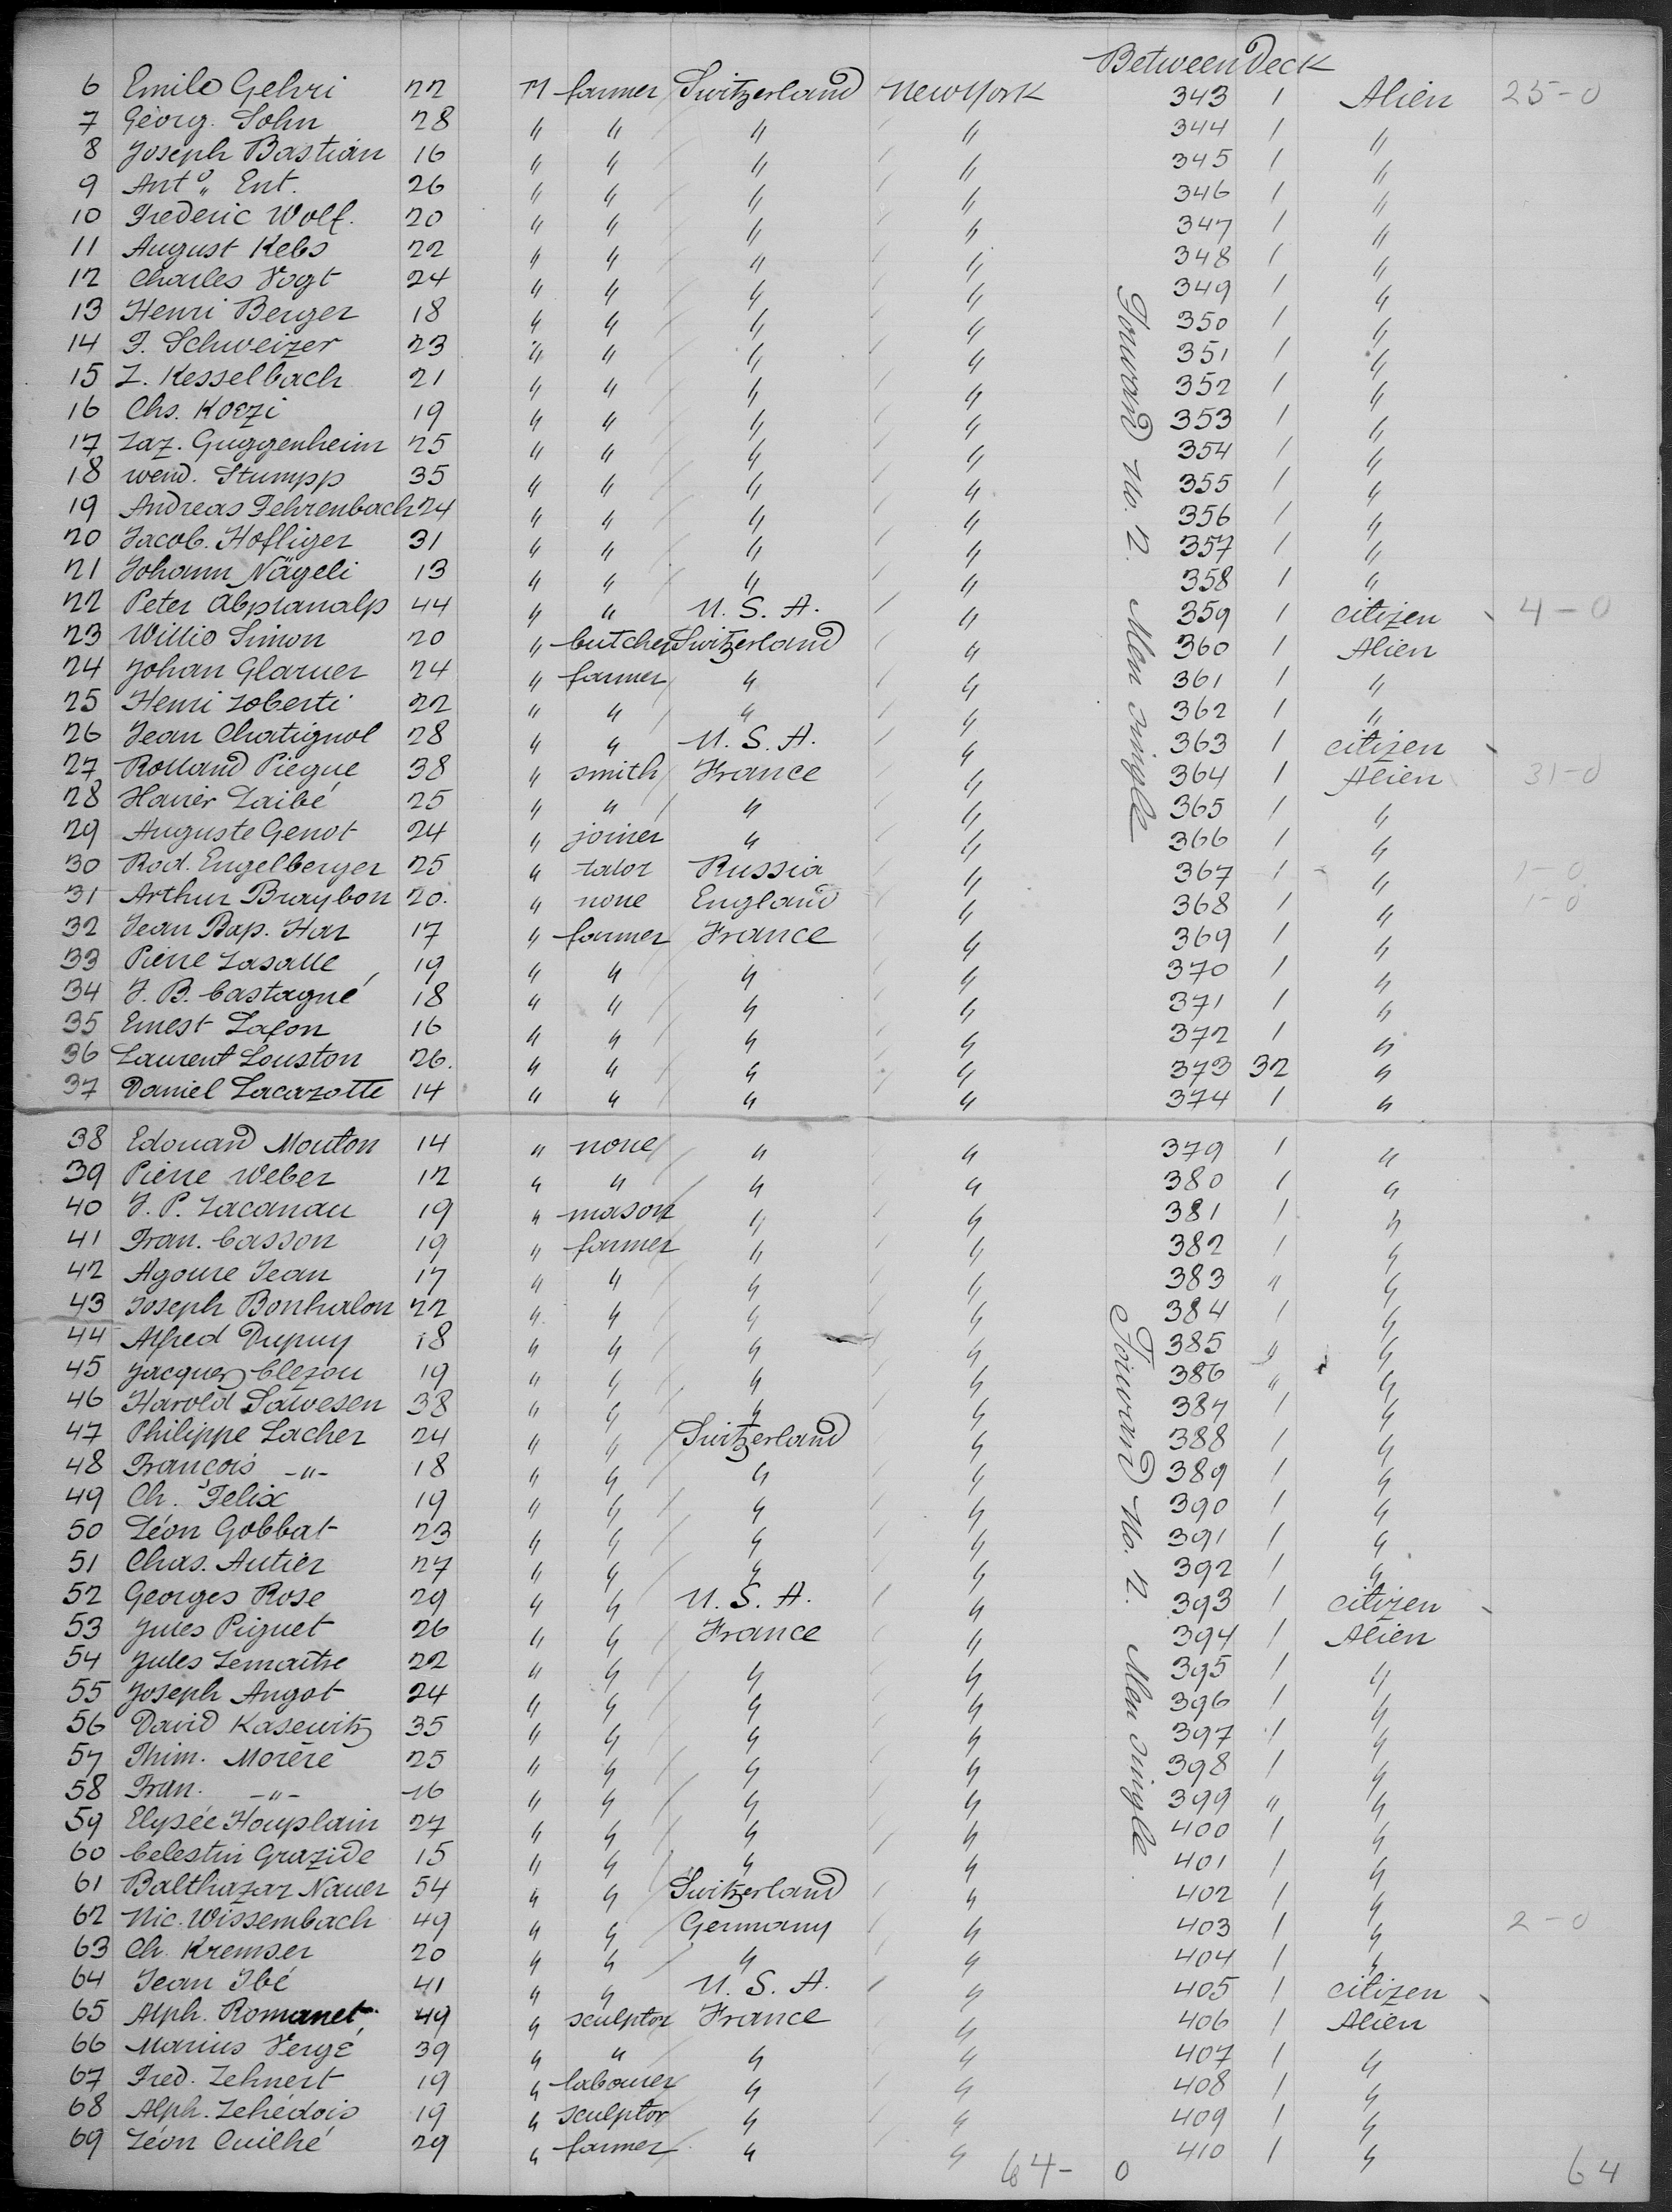 Between Deck
6 Emile Gehri 22 M farmer Switzerland New York 343 1 Alien 25-0
7 Georg. Sohn 28 " " " " 344 1 "
8 Joseph Bastian 16 " " " " 345 1 "
9 Ant° " Ent. 26 " " " " 346 1 "
10 Frederic Wolf. 20 " " " " 347 1 "
11 August Kebs 22 " " " " 348 1 "
12 Charles Vogt 24 " " " " 349 1 "
13 Henri Berger 18 " " " " 350 1 "
14 F. Schweizer 23 " " " " 351 1 "
15 L. Kesselbach 21 " " " " 352 1 "
16 Chs. Koezi 19 " " " " 353 1 "
17 Laz. Guggenheim 25 " " " " 354 1 "
18 Wend. Stumpp 35 " " " " 355 1 "
19 Andreas Fehrenbach 24 " " " " 356 1 "
20 Jacob. Hofliger 31 " " " " 357 1 "
21 Johann Nägeli 13 " " " " 358 1 "
22 Peter Abplanalp 44 " " U.S.A. " 359 1 citizen 4-0
23 Willio Simon 20 " butcher Switzerland " 360 1 Alien
24 Johan Glarner 24 " farmer " " 361 1 "
25 Henri Loberti 22 " " " " 362 1 "
26 Jean Chatignol 28 " " U.S.A. " 363 1 citizen
27 Rolland Piegue 38 " smith France " 364 1 Alien 31-0
28 Xavier Laibé 25 " " " " 365 1 "
29 Auguste Genot 24 " joiner " " 366 1 "
30 Rod. Engelberger 25 " tailor Russia " 367 1 " 1-0
31 Arthur Braybon 20. " none England " 368 1 " 1-0
32 Jean Bap. Har 17 " farmer France " 369 1 "
33 Pierre Lasalle 19 " " " " 370 1 "
34 J. B. Castagné 18 " " " " 371 1 "
35 Ernest Lafon 16 " " " " 372 1 "
36 Laurent Louston 26. " " " " 373 32 "
37 Daniel Lacazotte 14 " " " " 374 1 "
Forward No. 2. Men single
38 Edouard Mouton 14 " none " " 379 1 "
39 Pierre Weber 12 " " " " 380 1 "
40 J. P. Lacanau 19 " mason " " 381 1 "
41 Fran. Casson 19 " farmer " " 382 1 "
42 Agoure Jean 17 " " " " 383 " "
43 Joseph Bonhalon 22 " " " " 384 1 "
44 Alfred Dupuy 18 " " " " 385 " "
45 Jacques Clezou 19 " " " " 386 " "
46 Harold Sawesen 38 " " " " 387 1 "
47 Philippe Lacher 24 " " Switzerland " 388 1 "
48 François -"- 18 " " " " 389 1 "
49 Ch. Felix 19 " " " " 390 1 "
50 Léon Gobbat 23 " " " " 391 1 "
51 Chas. Autier 27 " " " " 392 1 "
52 Georges Rose 29 " " U.S.A. " 393 1 citizen
53 Jules Piguet 26 " " France " 394 1 Alien
54 Jules Lemaitre 22 " " " " 395 1 "
55 Joseph Angot 24 " " " " 396 1 "
56 David Kasewitz 35 " " " " 397 1 "
57 Thim. Morère 25 " " " " 398 1 "
58 Fran. -"- 16 " " " " 399 " "
59 Elysée Houplain 27 " " " " 400 1 "
60 Celestin Grazide 15 " " " " 401 1 "
61 Balthazar Nauer 54 " " Switzerland " 402 1 "
62 Nic. Wissembach 49 " " Germany " 403 1 " 2-0
63 Ch. Kremser 20 " " " " 404 1 "
64 Jean Ibé 41 " " U.S.A. " 405 1 citizen
65 Alph. Romanet 49 " sculptor France " 406 1 Alien
66 Marius Vergé 39 " " " " 407 1 "
67 Fred. Lehnert 19 " labourer " " 408 1 "
68 Alph. Lehédois 19 " sculptor " " 409 1 "
69 Léon Cuilhé 29 " farmer " " 410 1 "
Forward No. 2. Men single
64- 0 64